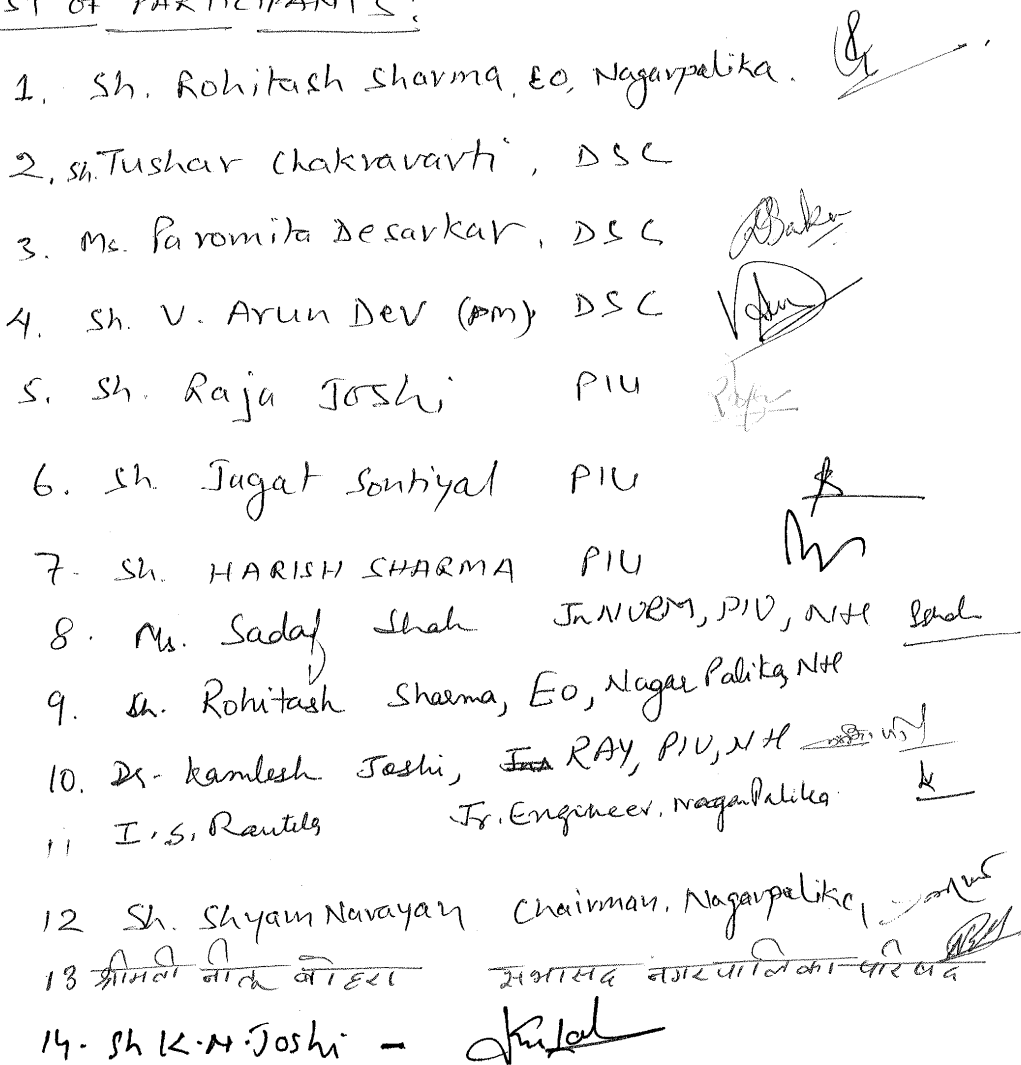 ST OF PARTICIPANTS:
1. Sh. Rohitash Sharma, EO, Nagarpalika.
2. Sh. Tushar Chakravarti, DSC
3. Ms. Paromita Desarkar, DSC
4. Sh. V. Arun Dev (PM) DSC
5. Sh. Raja Joshi PIU
6. Sh. Jagat Sontiyal PIU
7. Sh. HARISH SHARMA PIU
8. Ms. Sadaf Shah JnNURM, PIU, NH
9. Sh. Rohitash Sharma, EO, Nagar Palika, NH
10. Dr. Kamlesh Joshi, RAY, PIU, NH
11 I.S. Rautela Jr. Engineer, Nagar Palika
12 Sh. Shyam Narayan Chairman, Nagarpalika,
13 श्रीमती नीतू बोहरा सभासद नगरपालिका परिषद
14. Sh K.N. Joshi -